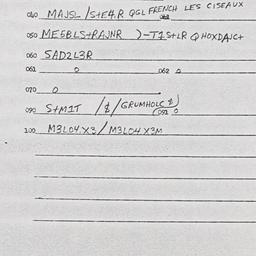 040 MAJSL /S+E4.R QGL FRENCH LES CISEAUX
050 ME5BLS+RAJNR )-T1S+LR Q HOXDAJC+
060 5AD2L3R
061 0 062 0
070 0
090 S+M1T /&/GRUMHOLC &)
091 0
100 M3L04X3/M3L04X3M